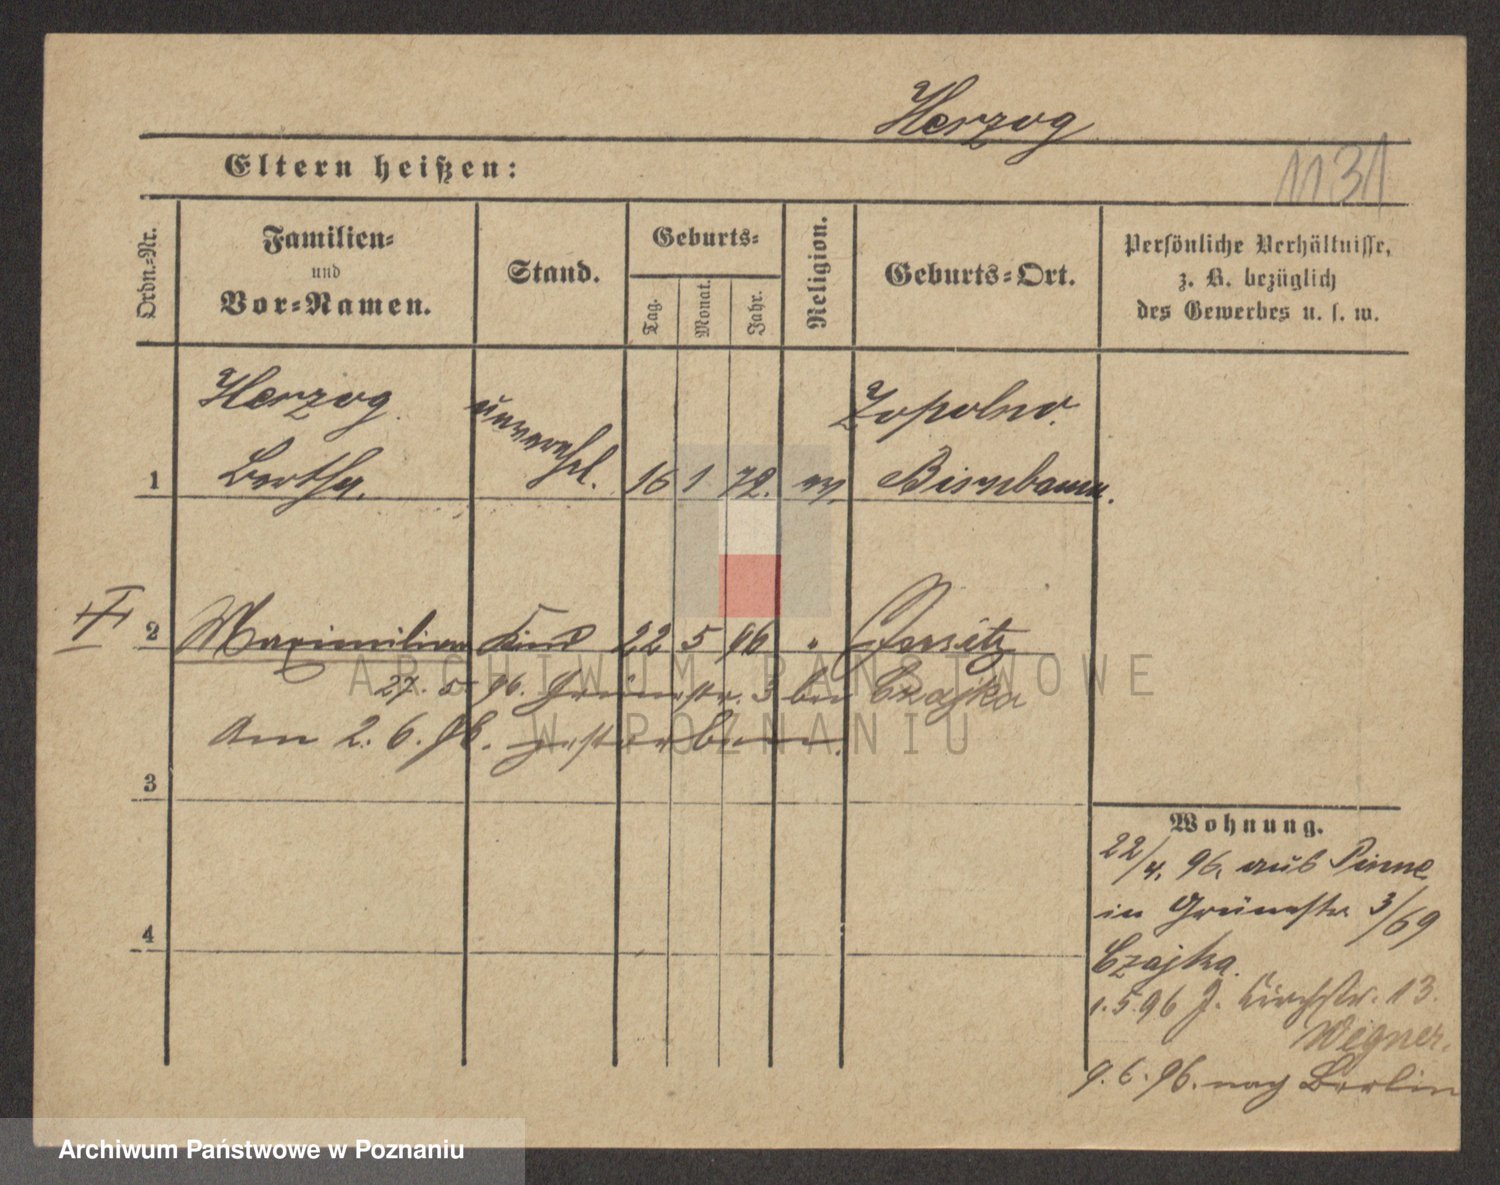 Herzog
1131
Eltern heißen:
Ordn.-Nr.
Familien-
und
Vor-Namen.
Stand.
Geburts-
Tag.
Monat.
Jahr.
Religion.
Geburts-Ort.
Persönliche Verhältnisse,
z. B. bezüglich
des Gewerbes u. s. w.
Herzog
Bertha.
unverehl.
Zopolno.
1
16 1 72. ev. Birnbaum.
2 Maximilian Kind 22 5 96 " Jersitz
27. 5. 96. Grünestr. 3 bei Czajka
Am 2. 6. 96. gestorben.
3
4
Wohnung.
22/4. 96. aus Pinne
in Grünestr 3/69
Czajka.
1. 5. 96 J. Kirchstr. 13.
Wegner.
9. 6. 96. nach Berlin
ARCHIWUM PAŃSTWOWE
W POZNANIU
Archiwum Państwowe w Poznaniu